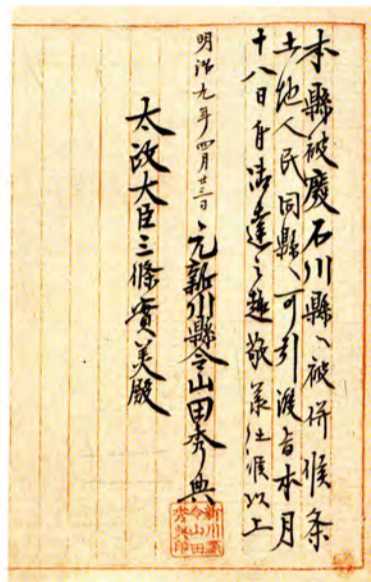 本縣被廢石川縣ヘ被併候条
土地人民同縣ヘ可引渡旨本月
十八日御達之趣敬承仕候以上
明治九年四月廿三日
元新川縣令山田秀典
太政大臣三條實美殿
新川縣
令山田
秀典印